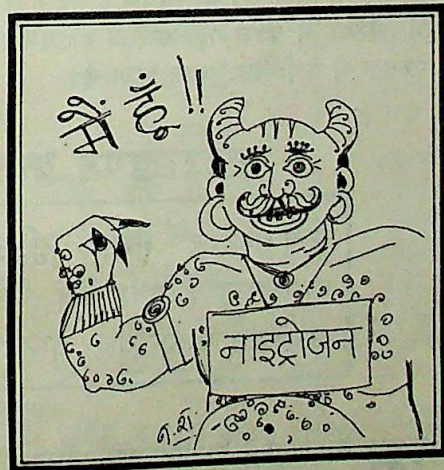 मैं हूँ !!
नाइट्रोजन
न.शं